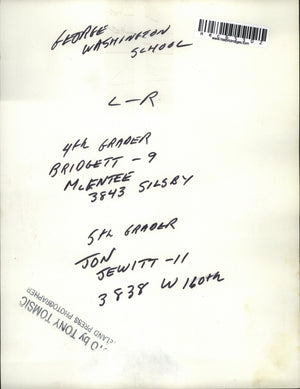 GEORGE
WASHINGTON
SCHOOL
L-R
4th GRADER
BRIDGETT - 9
McENTEE
3843 SILSBY
5th GRADER
JON
JEWITT - 11
3838 W 160th
O by TONY TOMSIC
LAND PRESS PHOTOGRAPHER